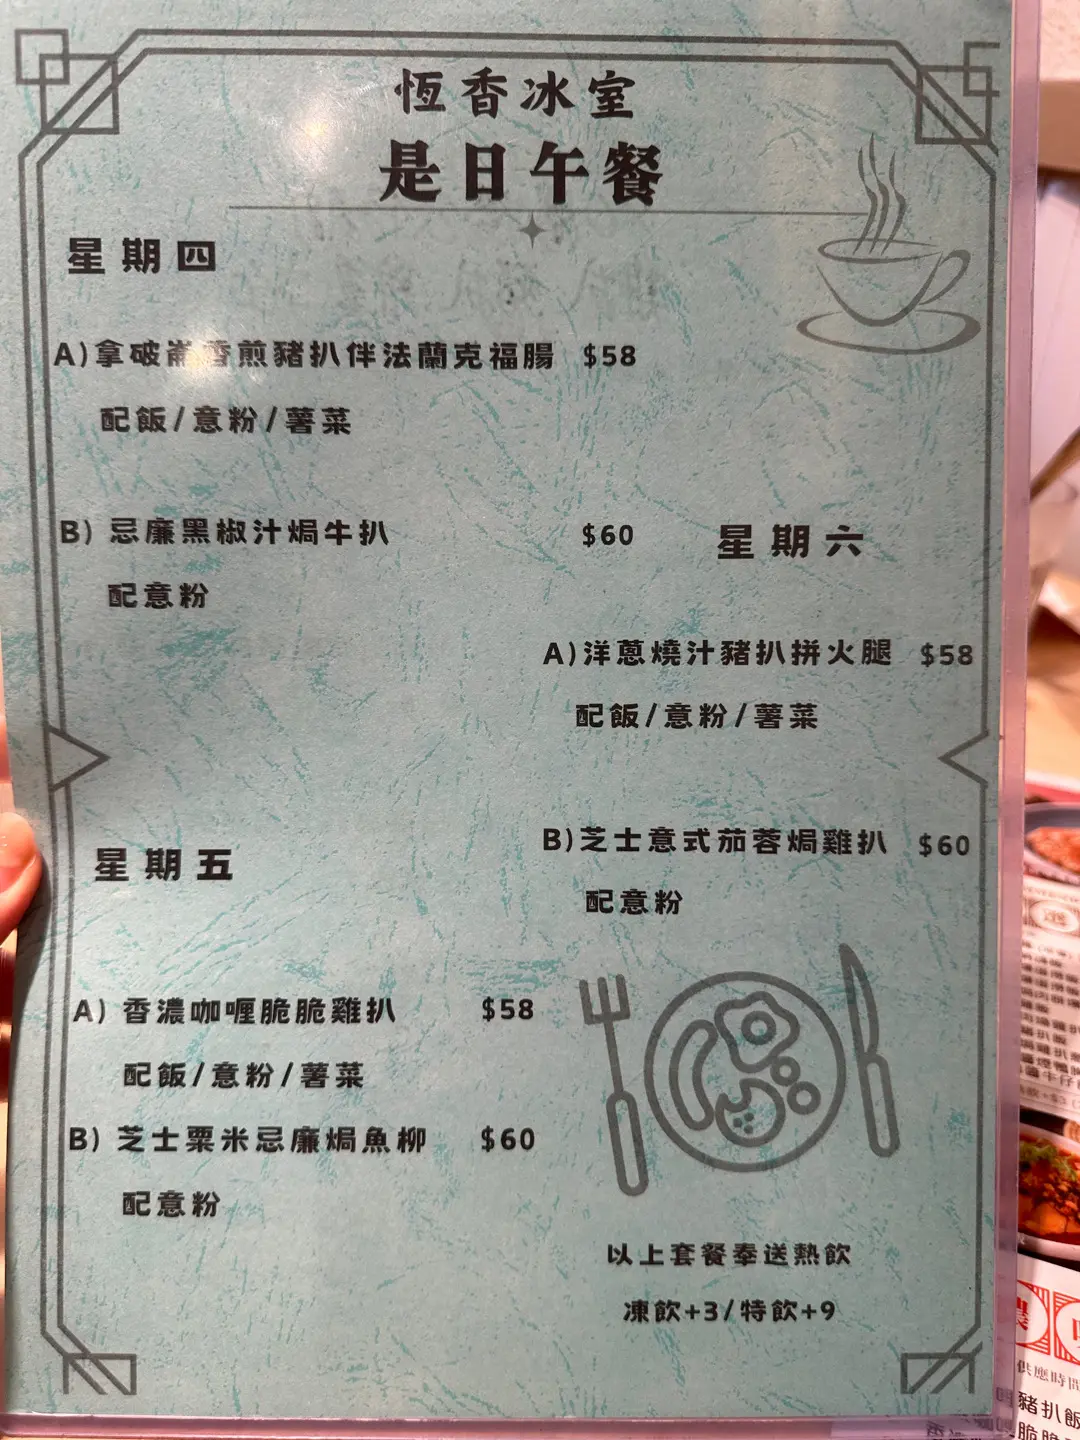 恆香冰室
是日午餐
星期四
A)拿破崙香煎豬扒伴法蘭克福腸 $58
配飯/意粉/薯菜
B) 忌廉黑椒汁焗牛扒 $60
配意粉
星期五
A) 香濃咖喱脆脆雞扒 $58
配飯/意粉/薯菜
B) 芝士粟米忌廉焗魚柳 $60
配意粉
星期六
A)洋蔥燒汁豬扒拼火腿 $58
配飯/意粉/薯菜
B)芝士意式茄蓉焗雞扒 $60
配意粉
以上套餐奉送熱飲
凍飲+3/特飲+9
供應時間
豬扒飯